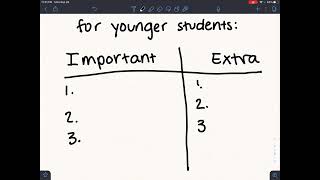 for younger students:
Important Extra
1. 1.
2. 2.
3. 3